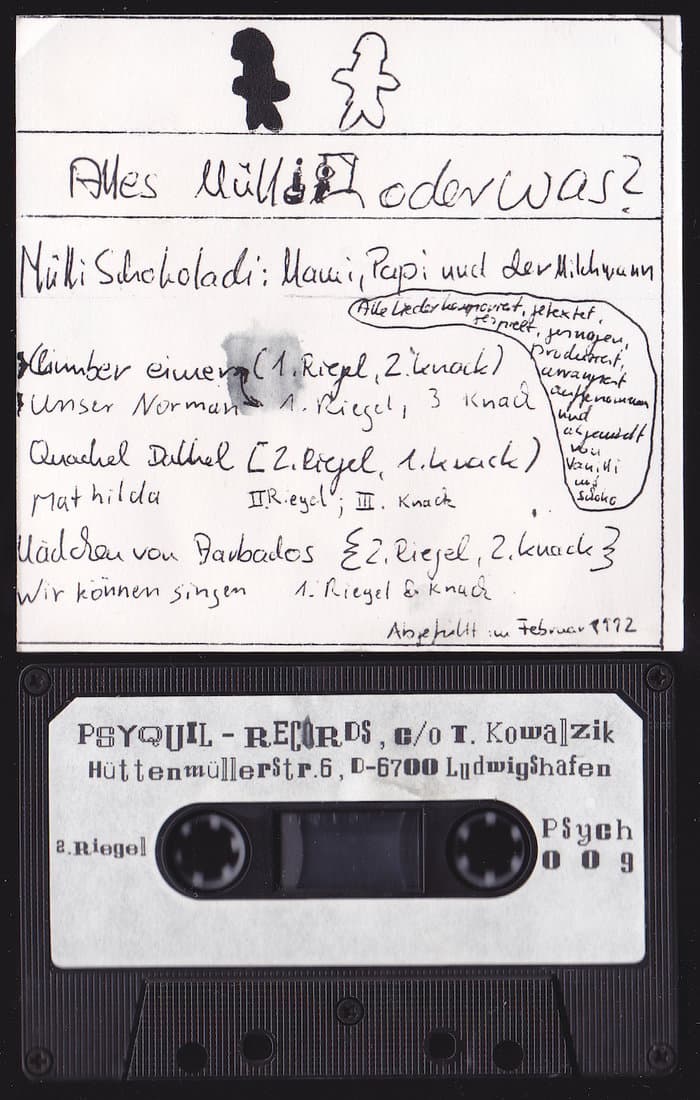 Alles Mülli oder was?
Mülli Schokoladi: Mami, Papi und der Milchmann
Alle Lieder komponiert, getextet,
gespielt, gesungen,
Produziert,
arrangiert
aufgenommen
und
abgemischt
von
Vanilli
und
Schoko
eimer (1. Riegel, 2. knack)
Unser Norman 1. Riegel, 3 Knack
Quachel Dalhel [2. Riegel, 1. knack)
Mathilda II Riegel; III. Knack
Mädchen von Barbados {2. Riegel, 2. knack}
Wir können singen 1. Riegel & Knack
Abgefüllt im Februar 1992
PSYQUIL - RECORDS, c/o T. Kowalzik
HüttenmüllerStr.6, D-6700 LudwigShafen
2.Riegel
PSych
0 0 9